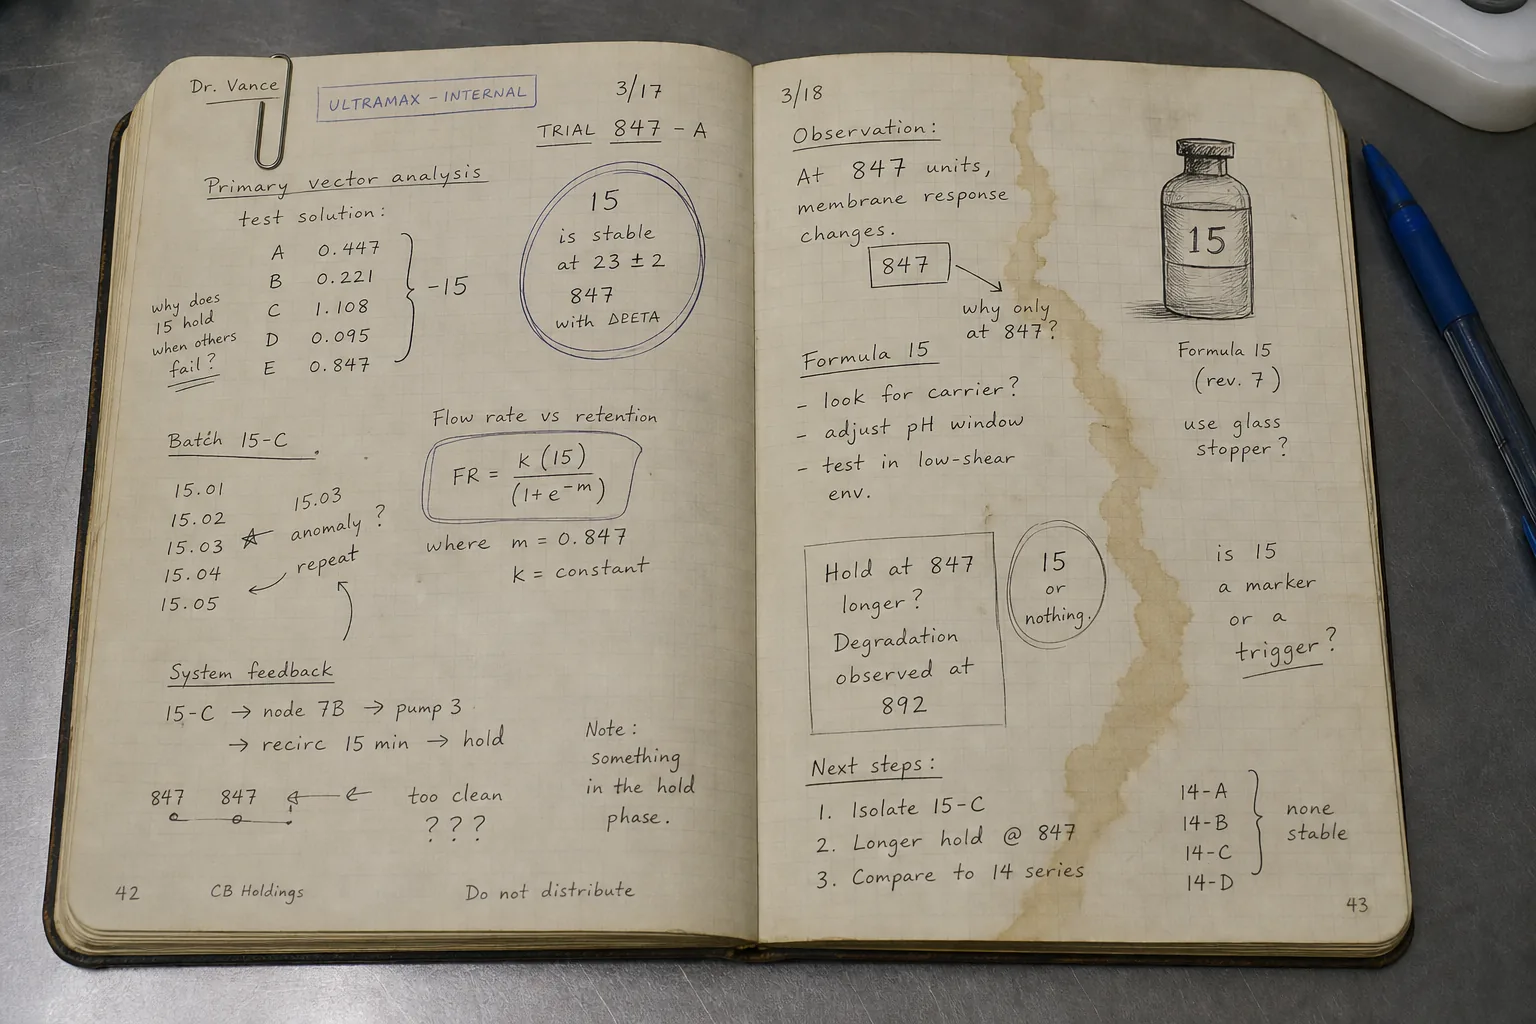 Dr. Vance
ULTRAMAX - INTERNAL
3/17
TRIAL 847 - A
Primary vector analysis
test solution:
A 0.447
B 0.221
C 1.108
D 0.095
E 0.847
-15
why does
15 hold
when others
fail?
15
is stable
at 23 ± 2
847
with ΔBETA
Batch 15-C
15.01
15.02
15.03
15.04
15.05
15.03
anomaly ?
repeat
Flow rate vs retention
FR = k (15) / (1+e^-m)
where m = 0.847
k = constant
System feedback
15-C → node 7B → pump 3
→ recirc 15 min → hold
847 847
too clean
? ? ?
Note:
something
in the hold
phase.
42
CB Holdings
Do not distribute
3/18
Observation:
At 847 units,
membrane response
changes.
847
why only
at 847?
15
Formula 15
(rev. 7)
use glass
stopper?
Formula 15
- look for carrier?
- adjust pH window
- test in low-shear
env.
Hold at 847
longer?
Degradation
observed at
892
15
or
nothing.
is 15
a marker
or a
trigger?
Next steps:
1. Isolate 15-C
2. Longer hold @ 847
3. Compare to 14 series
14-A
14-B
14-C
14-D
none
stable
43